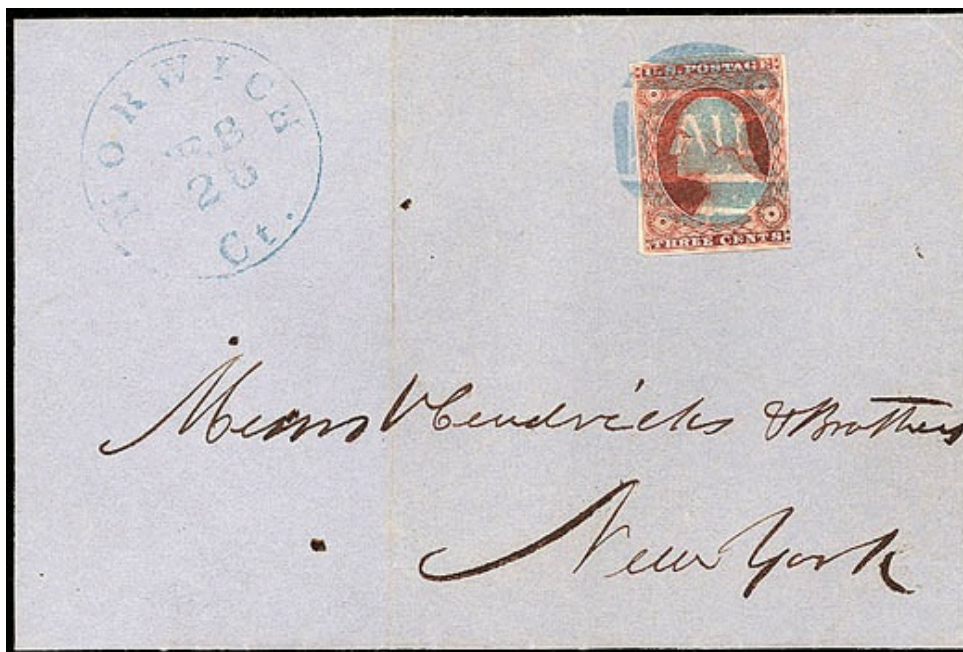 NORWICH
FEB
26
Ct.
U.S. POSTAGE
PAID
THREE CENTS
Messrs Hendricks & Brothers
New York